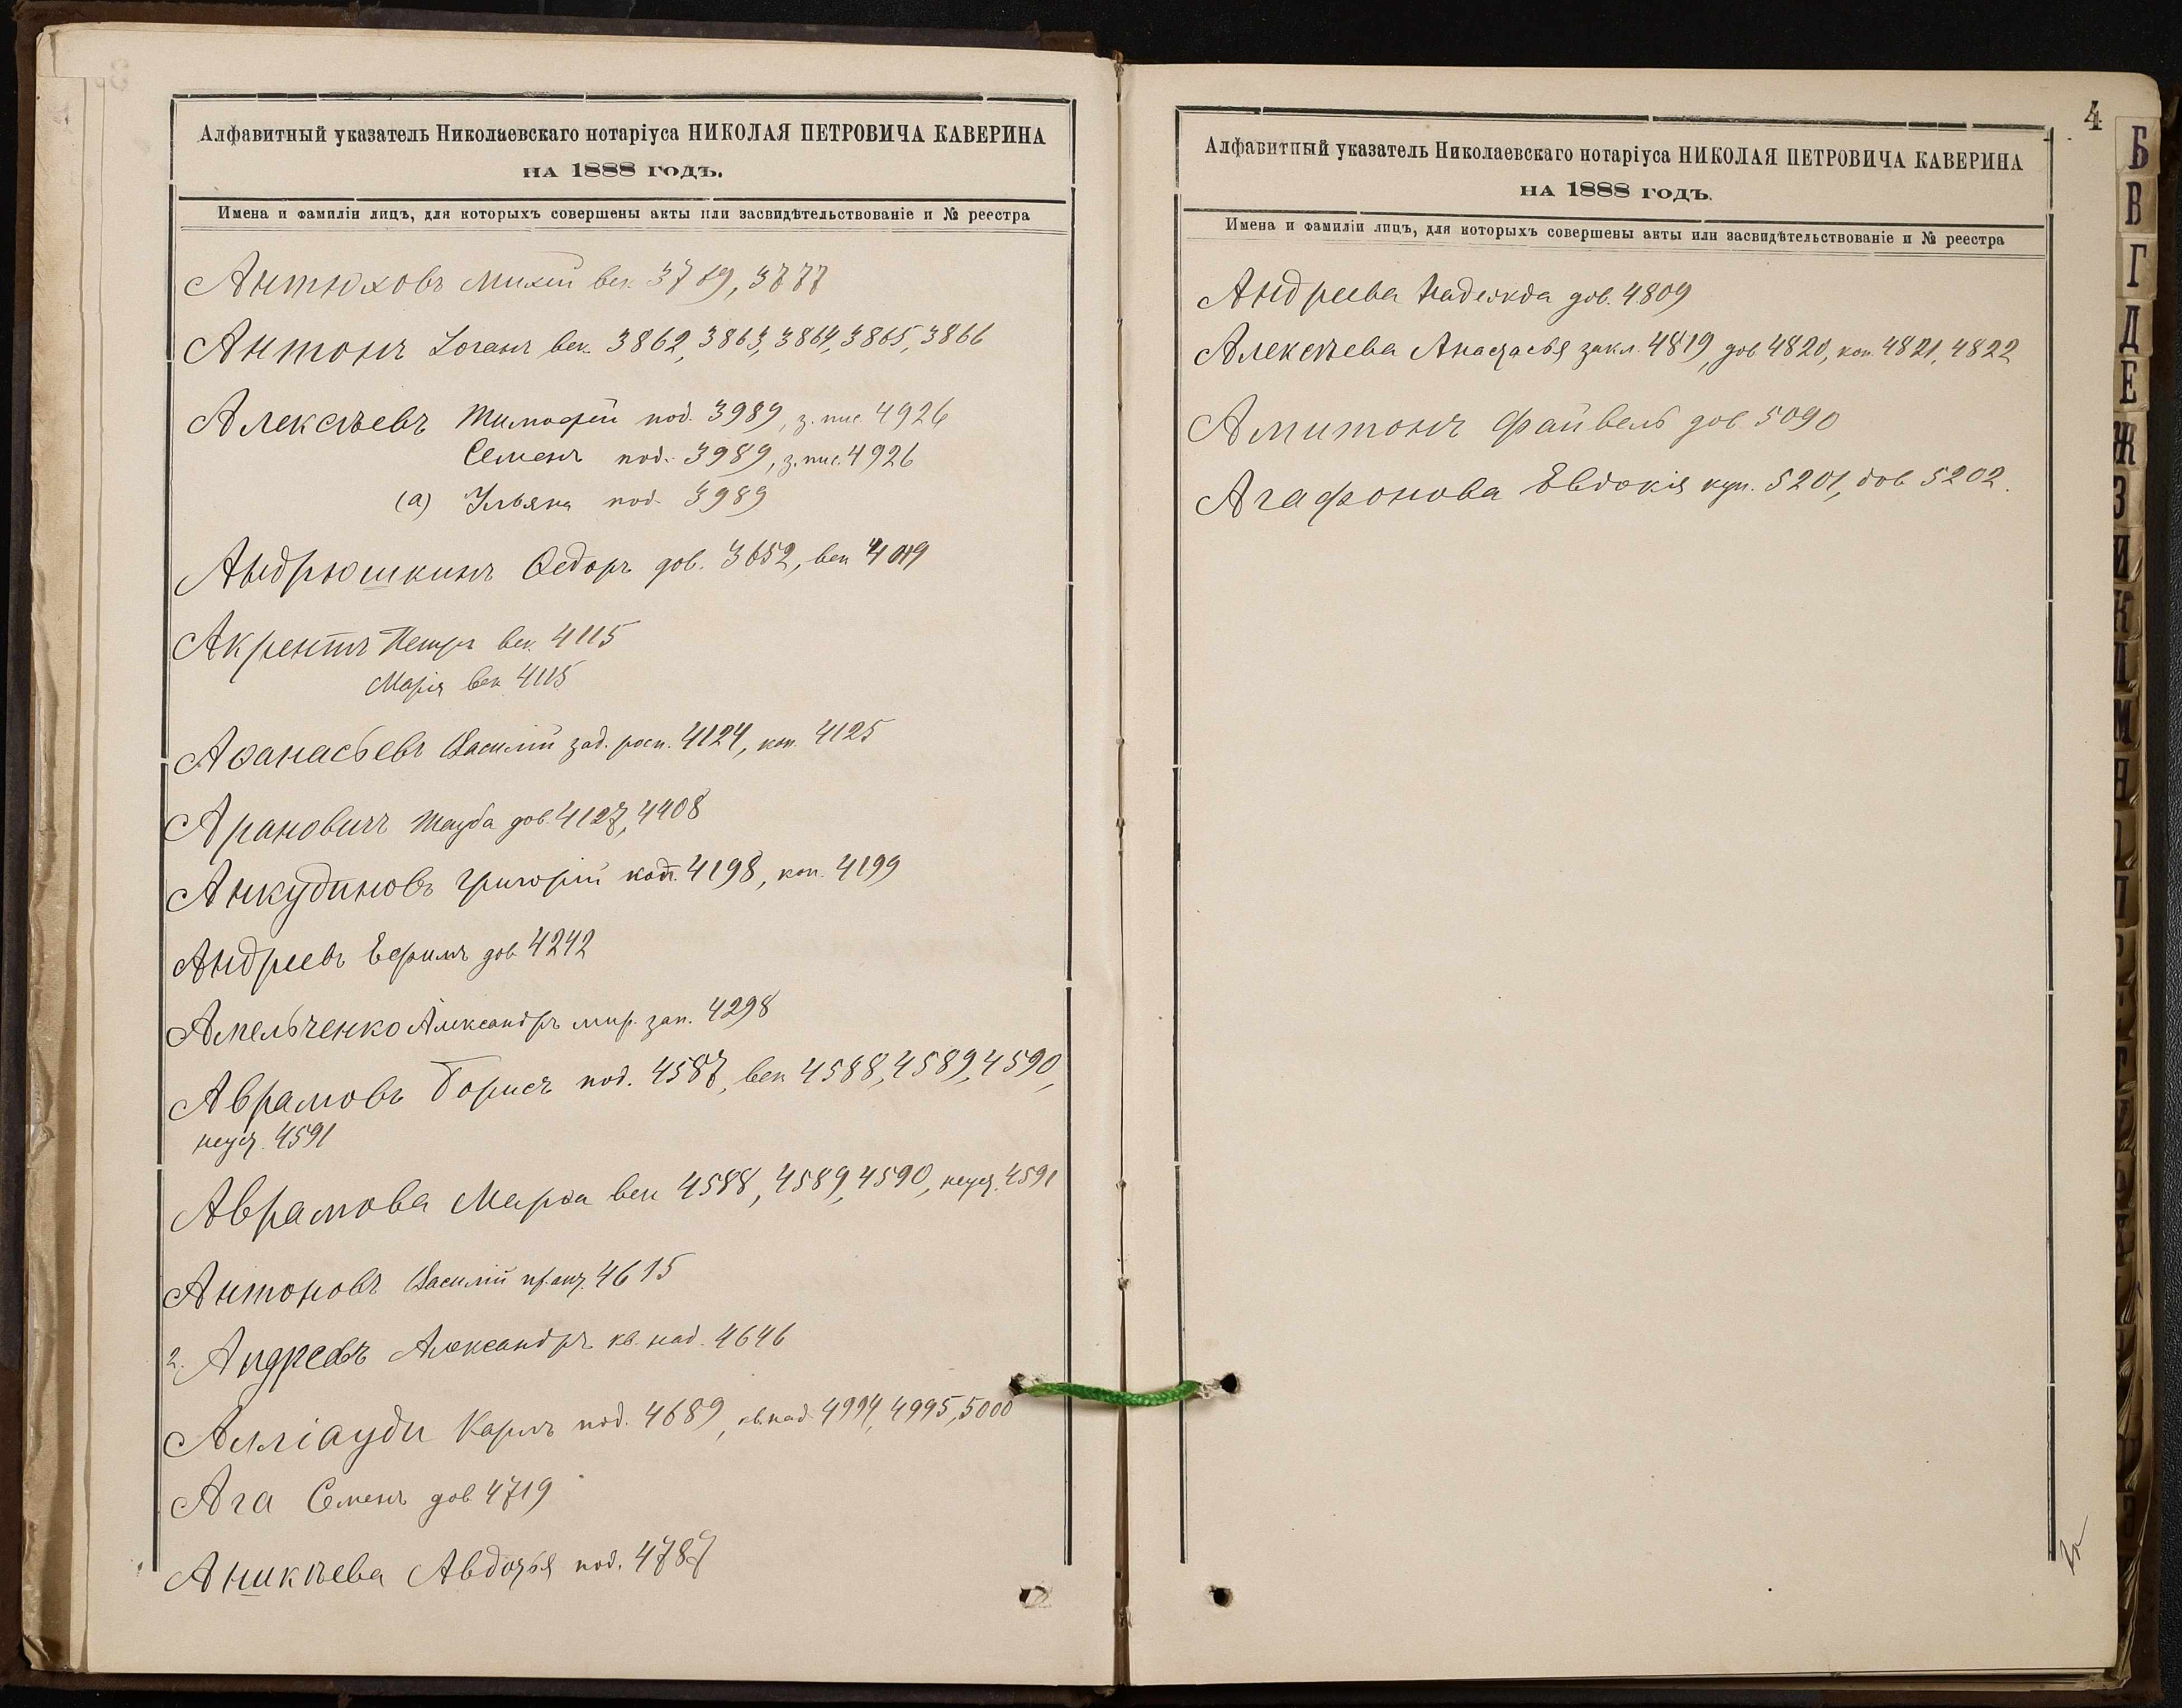 Алфавитный указатель Николаевскаго нотаріуса НИКОЛАЯ ПЕТРОВИЧА КАВЕРИНА
НА 1888 ГОДЪ.
Имена и фамиліи лицъ, для которыхъ совершены акты или засвидѣтельствованіе и № реестра
Антюховъ век 3777
Антонъ Іоганъ век. 3862, 3863, 3864, 3865, 3866
Алексѣевъ Тимофей под. 3989, з. пис 4926
Семенъ под. 3989, з. пис. 4926
(а) Ульяна под. 3989
Андрюшкинъ Ѳедоръ дов. 3652, век
Акрентъ Петръ век. 4115
Марія век 4115
Аѳанасьевъ Василій зад. росп. 4124, коп. 4125
Арановичъ Тауба дов. 4127, 4408
Анкудиновъ Григорій 4198, коп. 4199
Андреевъ Ефимъ дов 4242
Амельченко Александръ мир. зап. 4298
Аврамовъ Борисъ под. 4587, век 4588, 4589, 4590,
неуст. 4591
Аврамова Марѳа век 4588, 4589, 4590, неуст. 4591
Антоновъ Василій 4615
2. Андреевъ Александръ кв. над. 4646
Карлъ под. 4689, кв. над. 4994, 4995, 5000
Ага Семенъ дов 4719
Аникѣева Авдотья под. 4787
4
Алфавитный указатель Николаевскаго нотаріуса НИКОЛАЯ ПЕТРОВИЧА КАВЕРИНА
НА 1888 ГОДЪ.
Имена и фамиліи лицъ, для которыхъ совершены акты или засвидѣтельствованіе и № реестра
Андреева Надежда дов. 4809
Алексѣева Анастасья закл. 4819, дов 4820, коп. 4821, 4822
Амитонъ Файвель дов. 5090
Агафонова Евдокія куп. 5201, дов 5202.
Б
В
Г
Д
Е
Ж
З
И
К
Л
М
Н